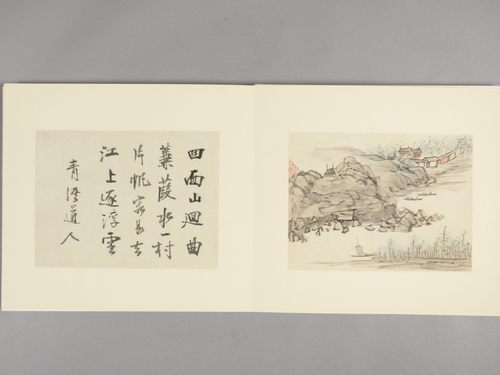 四面山迴曲
蒹葭水一村
片帆容易去
江上逐浮雲
青溪道人